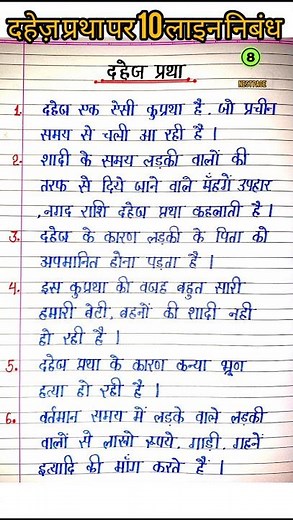 दहेज़ प्रथा पर 10 लाइन निबंध
8
NEXTPAGE
दहेज प्रथा
1. दहेज एक ऐसी कुप्रथा है, जो प्रचीन
समय से चली आ रही है ।
2. शादी के समय लड़की वालों की
तरफ से दिये जाने वाले मँहगें उपहार
,नगद राशि दहेज प्रथा कहलाती है ।
3. दहेज के कारण लड़की के पिता को
अपमानित होना पड़ता है ।
4. इस कुप्रथा की वजह बहुत सारी
हमारी बेटी, बहनों की शादी नही
हो रही है ।
5. दहेज प्रथा के कारण कन्या भ्रूण
हत्या हो रही है ।
6. वर्तमान समय में लड़के वाले लड़की
वालों से लाखो रूपये, गाड़ी, गहनें
इत्यादि की माँग करते हैं ।